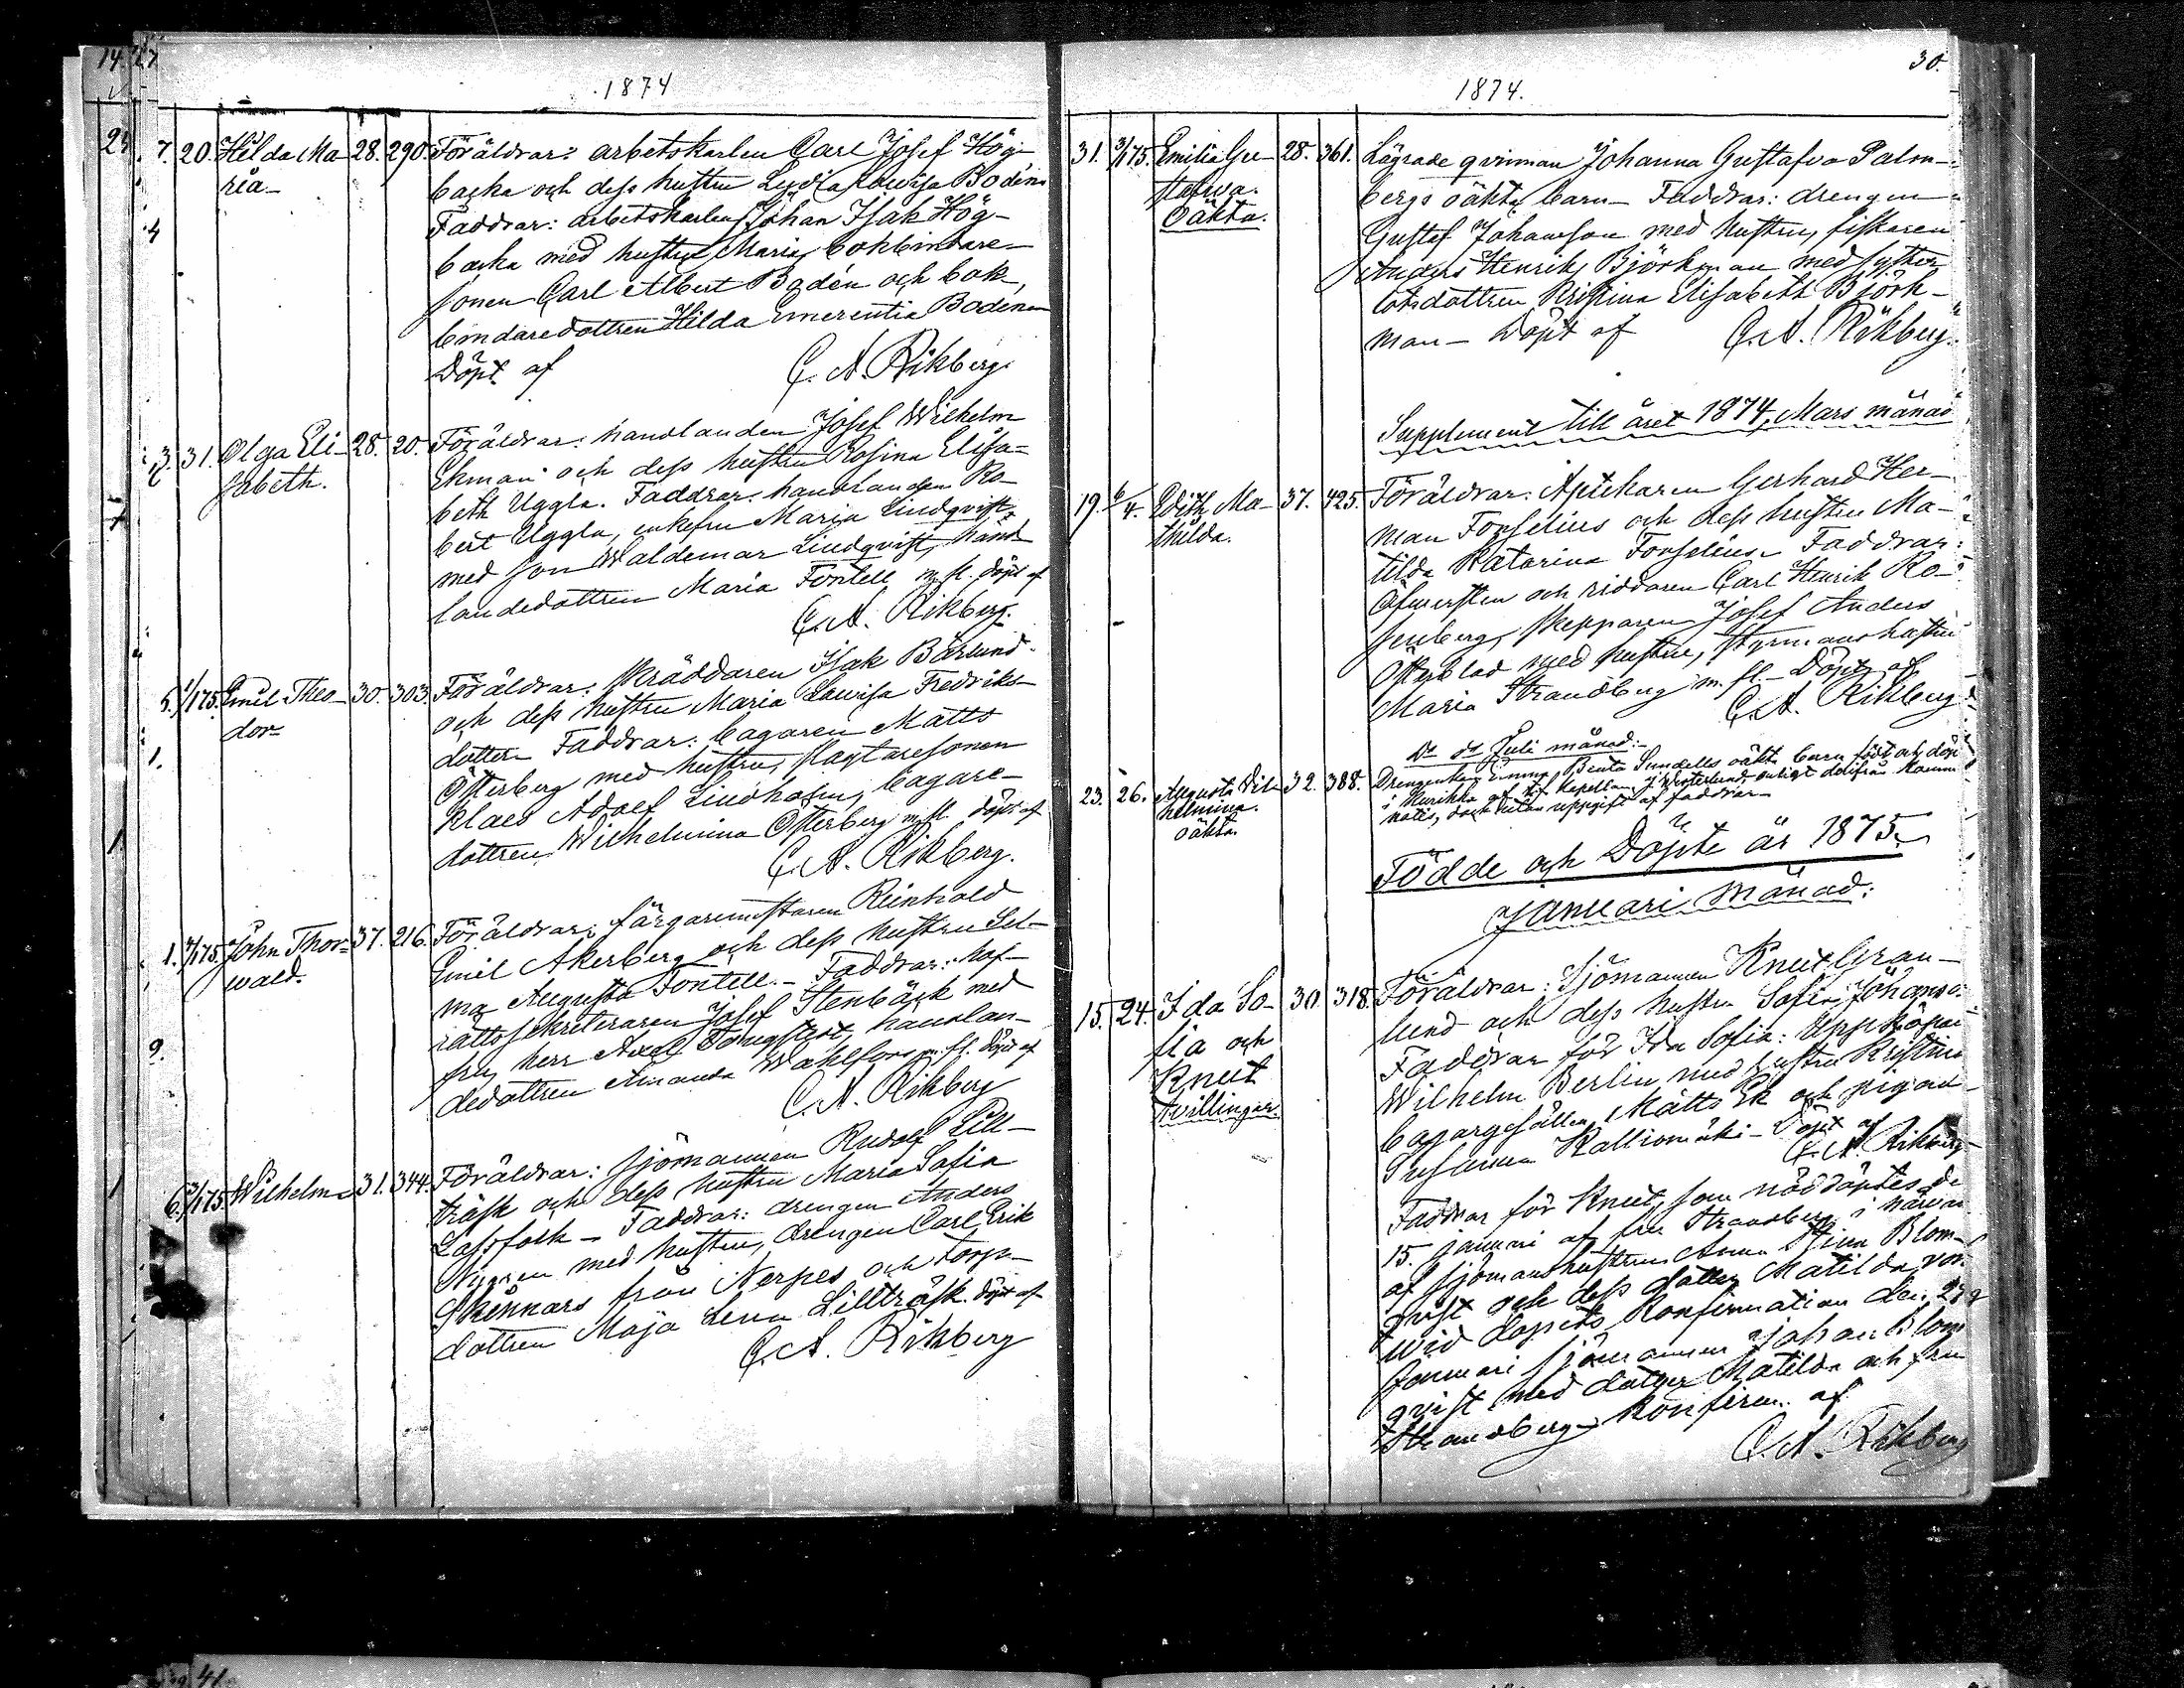 1874
7. 20. Hilda Ma- 28. 290. Föräldrar: arbetskarlen Carl Josef Hög-
ria. backa och dess hustru Lydia Lovisa Bodén
Faddrar: arbetskarlen Johan Isak Hög-
backa med hustru Maria, bokbindare-
sonen Carl Albert Bodén och bok-
bindaredottren Hilda Emerentia Bodén
Döpt af C. A. Rikberg.
31. Olga Eli- 28. 20. Föräldrar: handlanden Josef Wilhelm
sabeth. Ekman och dess hustru Rosina Elisa-
beth Uggla. Faddrar: handlanden Ro-
bert Uggla, enkefru Maria Lindqvist
med son Waldemar Lindqvist, hand-
landedottren Maria Fontell m. fl. döpt af
C. A. Rikberg.
5. 1/1 75. Emil Theo- 30. 303. Föräldrar: skräddaren Isak Bärlund
dor. och dess hustru Maria Lovisa Fredriks-
dotter Faddrar: bagaren Matts
Österberg med hustru, slagtaresonen
Klaes Adolf Lindholm, bagare-
dottren Wilhelmina Österberg m. fl. döpt af
C. A. Rikberg.
1. /1 75. John Thor- 37. 216. Föräldrar: färgaremästaren Reinhold
wald. Emil Åkerberg och dess hustru Sel-
ma Augusta Fontell. Faddrar: hof-
rättssekreteraren Josef Stenbäck med
fru, herr Axel Tengström, handlan-
dedottren Amanda Wahlfors m. fl. döpt af
C. A. Rikberg
6. /1 75. Wilhelm 31. 344. Föräldrar: sjömannen Rudolf Lill-
träsk och dess hustru Maria Sofia
Lassfolk - Faddrar: drengen Anders
med hustru, drengen Carl Erik
Skinnars från Nerpes och Torp-
dottren Maja Lena Lillträsk. döpt af
C. A. Rikberg
30.
1874.
31. 3/1 75. Emilia Gu- 28. 361. Lägrade qvinnan Johanna Gustafva Palm-
stafva. bergs oäkta barn - Faddrar: drengen
oäkta. Gustaf Johansson med hustru, fiskaren
Anders Henrik Björkman med syster
lotsdottren Kristina Elisabeth Björk-
man - Döpt af C. A. Rikberg.
Supplement till året 1874, Mars månad
19. 6/4. Edith Ma- 37. 425. Föräldrar: Apotekaren Gerhard Her-
thilda. man Forselius och dess hustru Ma-
tilda Katarina Forselius. Faddrar:
Öfversten och riddaren Carl Henrik Ro-
senberg, skepparen Josef Anders
Österblad med hustru, styrmanshustru
Maria Strandberg m. fl. - Döpt af
C. A. Rikberg
Do do Juli månad:
23. 26. Augusta Vil- 32. 388. Drengenkan Emma Benta Sundells oäkta barn född och döpt
helmina. i Kurikka af v. Kapellan J. Westerlund, enligt derifrån kommen
oäkta. notis, dock utan uppgift af faddrar -
Födde och Döpte år 1875.
Januari Månad:
15. 24. Ida So- 30. 318. Föräldrar: Sjömannen Knut Gran-
fia och lund och dess hustru Sofia Johansd.
Knut Faddrar för Ida Sofia: Uppköpare
tvillingar. Wilhelm Berlin med hustru Kristina
bagargesällen Matts Ek och pigan
Susanna Kalliomäki - Döpt af
C. A. Rikberg
Faddrar för Knut, som nöddöptes de
15. januari af fru Strandberg i närvaro
af sjömanshustrun Anna Stina Blom-
qvist och dess dotter Matilda, voro
wid dopets konfirmation den 24
Januari sjömannen Johan Blom-
qvist med dotter Matilda och fru
Strandberg. Konfirm. af
C. A. Rikberg